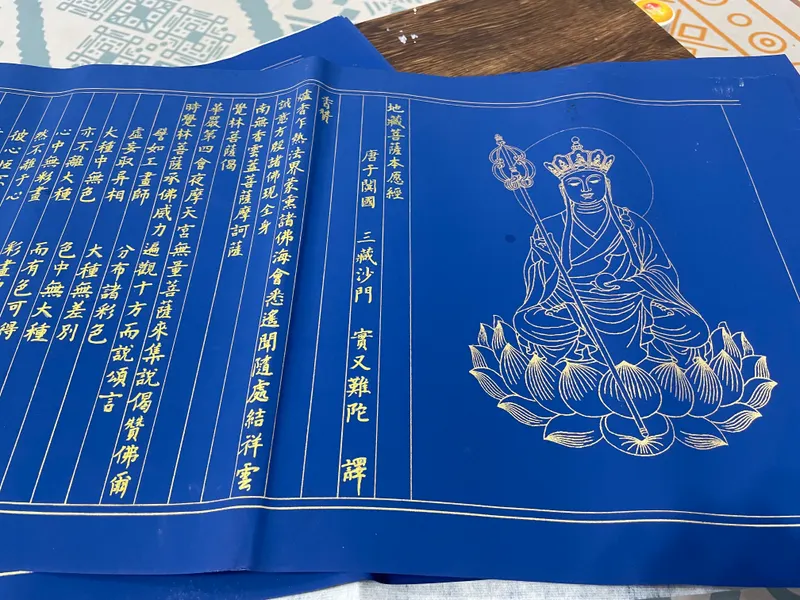 地藏菩薩本愿經
唐于闐國 三藏沙門 實叉難陀 譯
香贊
爐香乍熱法界蒙熏諸佛海會悉遙聞隨處結祥雲
誠意方殷諸佛現全身
南無香雲蓋菩薩摩訶薩
覺林菩薩偈
華嚴第四會夜摩天宮無量菩薩來集說偈贊佛爾
時覺林菩薩承佛威力遍觀十方而說頌言
譬如工畫師 分布諸彩色
虛妄取異相 大種無差別
大種中無色 色中無大種
亦不離大種 而有色可得
心中無彩畫 彩畫
然不離于心
彼心恆不